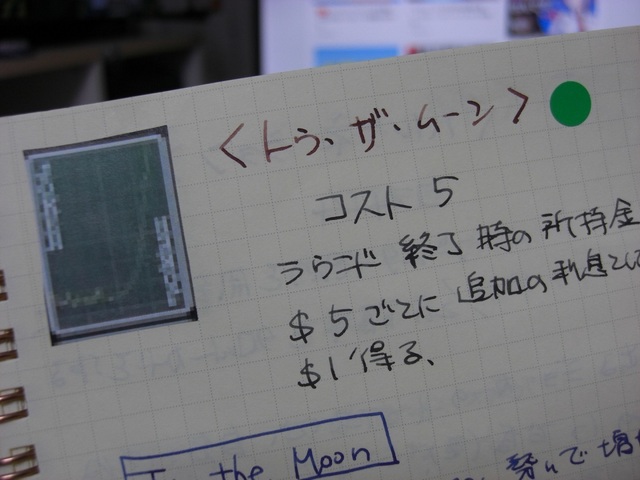 <トゥ・ザ・ムーン>
コスト 5
ラウンド 終了時の所持金
$5ごとに 追加の利息として
$1得る、
To the Moon
稼いで